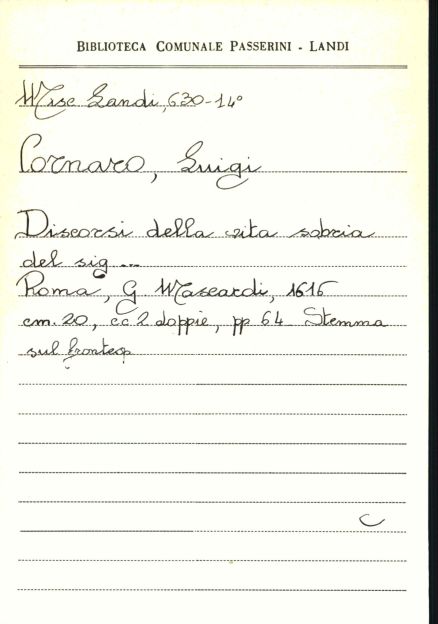 BIBLIOTECA COMUNALE PASSERINI - LANDI
Misc Landi, 630-14°
Cornaro, Luigi
Discorsi della vita sobria
del sig ...
Roma, G Mascardi, 1616
cm. 20, cc 2 doppie, pp 64 Stemma
sul frontesp
C